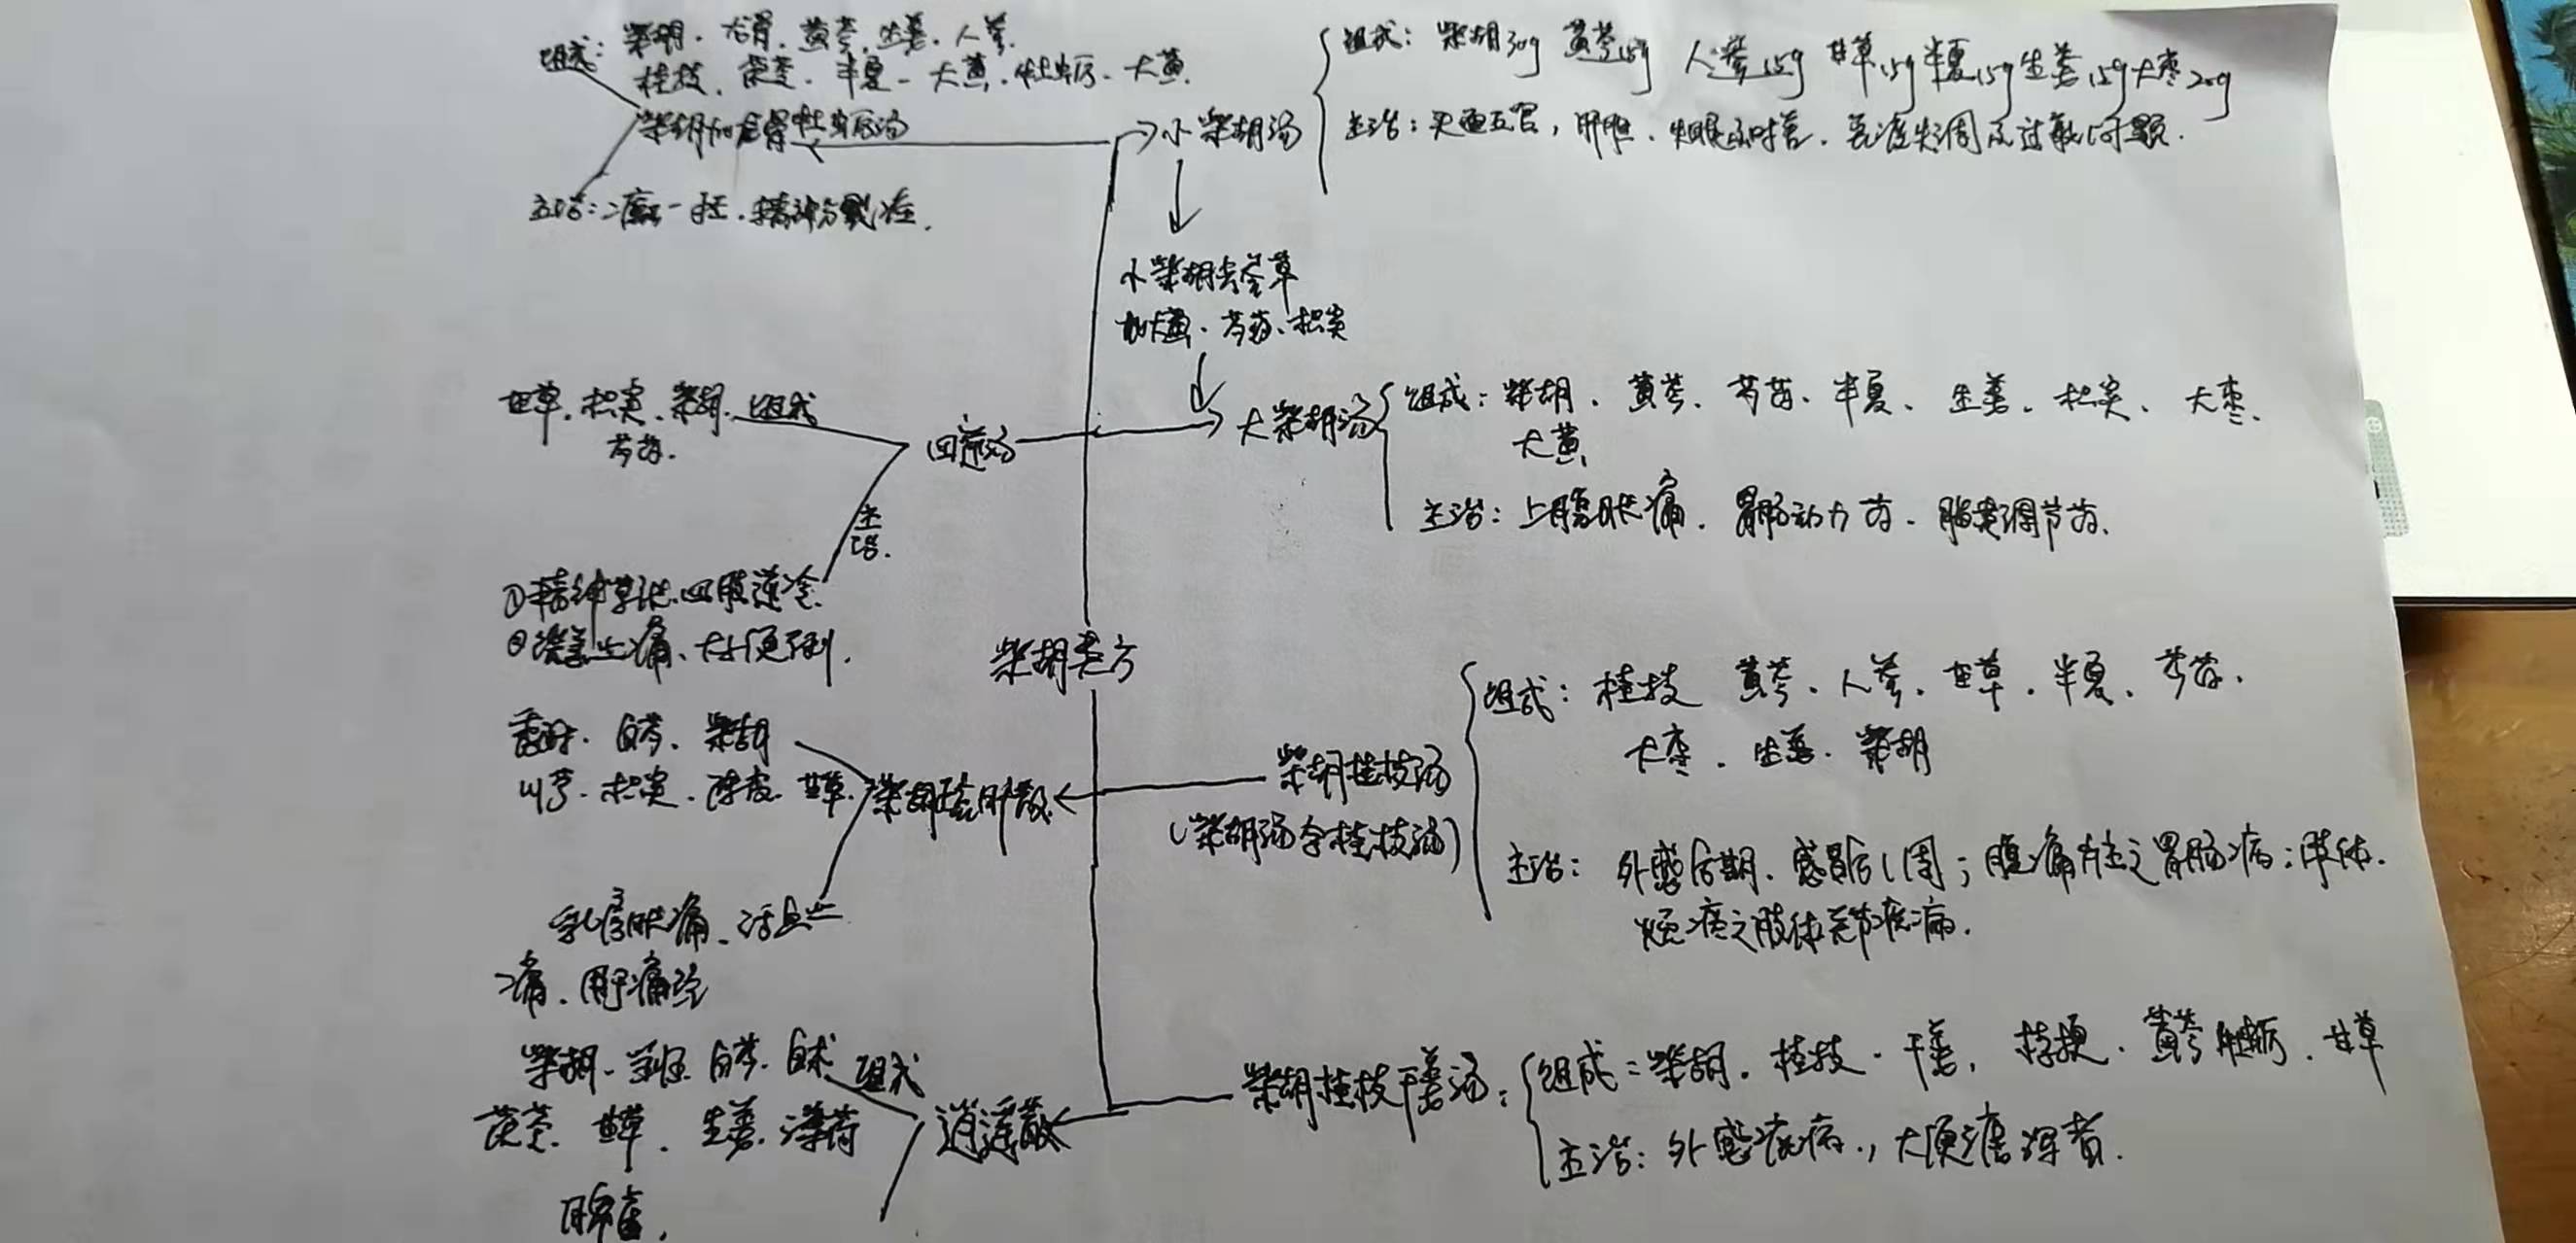 组成：柴胡、龙骨、黄芩、生姜、人参、
桂枝、茯苓、半夏、大黄、牡蛎、大黄.
柴胡加龙骨牡蛎汤
主治：癫、狂、精神分裂症.
→小柴胡汤
组成：柴胡30g 黄芩15g 人参15g 甘草15g 半夏15g 生姜15g 大枣20g
主治：头面五官，肝胆、免疫失调及过敏问题.
小柴胡去参草
加大黄、芍药、枳实
甘草、枳实、柴胡、组成
芍药.
四逆汤
主治.
四肢逆冷
大便不利.
大柴胡汤
组成：柴胡、黄芩、芍药、半夏、生姜、枳实、大枣、
大黄
主治：上腹胀痛、胃肠动力药、脂类调节药.
柴胡类方
香附、白芍、柴胡
川芎、枳实、陈皮、甘草.
柴胡疏肝散
乳房胀痛、
痛、痛经
柴胡桂枝汤
（柴胡汤合桂枝汤）
组成：桂枝 黄芩、人参、甘草、半夏、芍药、
大枣、生姜、柴胡
主治：外感后期、感冒后1周；腹痛为主之胃肠病；肢体
烦疼之肢体关节疼痛.
柴胡、当归、白芍、白术 组成
茯苓、甘草、生姜、薄荷
逍遥散
柴胡桂枝干姜汤：
组成：柴胡、桂枝、干姜、桔梗、黄芩 牡蛎、甘草
主治：外感疾病，大便溏泻者.